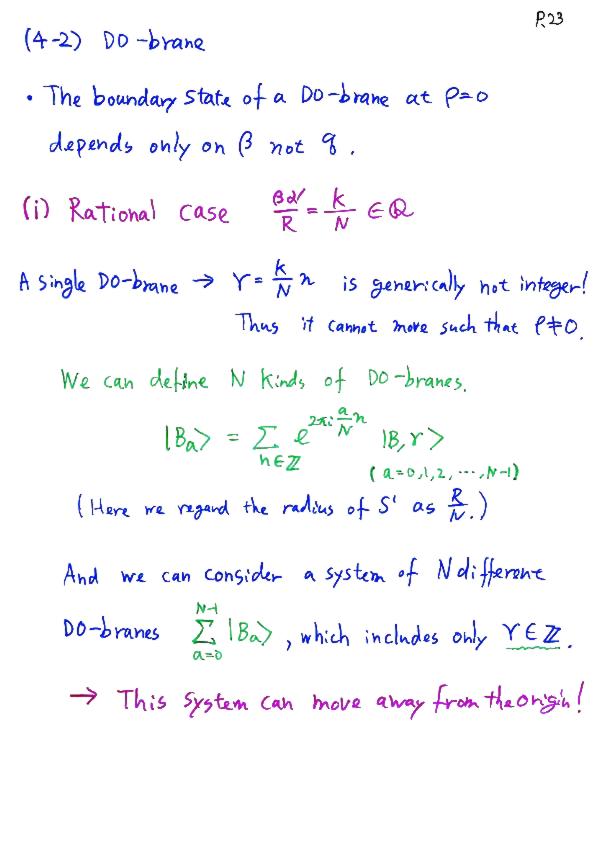 P.23
(4-2) D0-brane
• The boundary state of a D0-brane at ρ=0
depends only on β not q.
(i) Rational case βα'/R = k/N ∈ Q
A single D0-brane → γ = k/N n is generically not integer!
Thus it cannot move such that ρ≠0.
We can define N kinds of D0-branes.
|Ba> = Σ_{n∈Z} e^{2πi a/N n} |B,γ>
(a=0,1,2,⋯,N-1)
(Here we regard the radius of S¹ as R/N.)
And we can consider a system of N different
D0-branes Σ_{a=0}^{N-1} |Ba>, which includes only γ∈Z.
→ This system can move away from the origin!